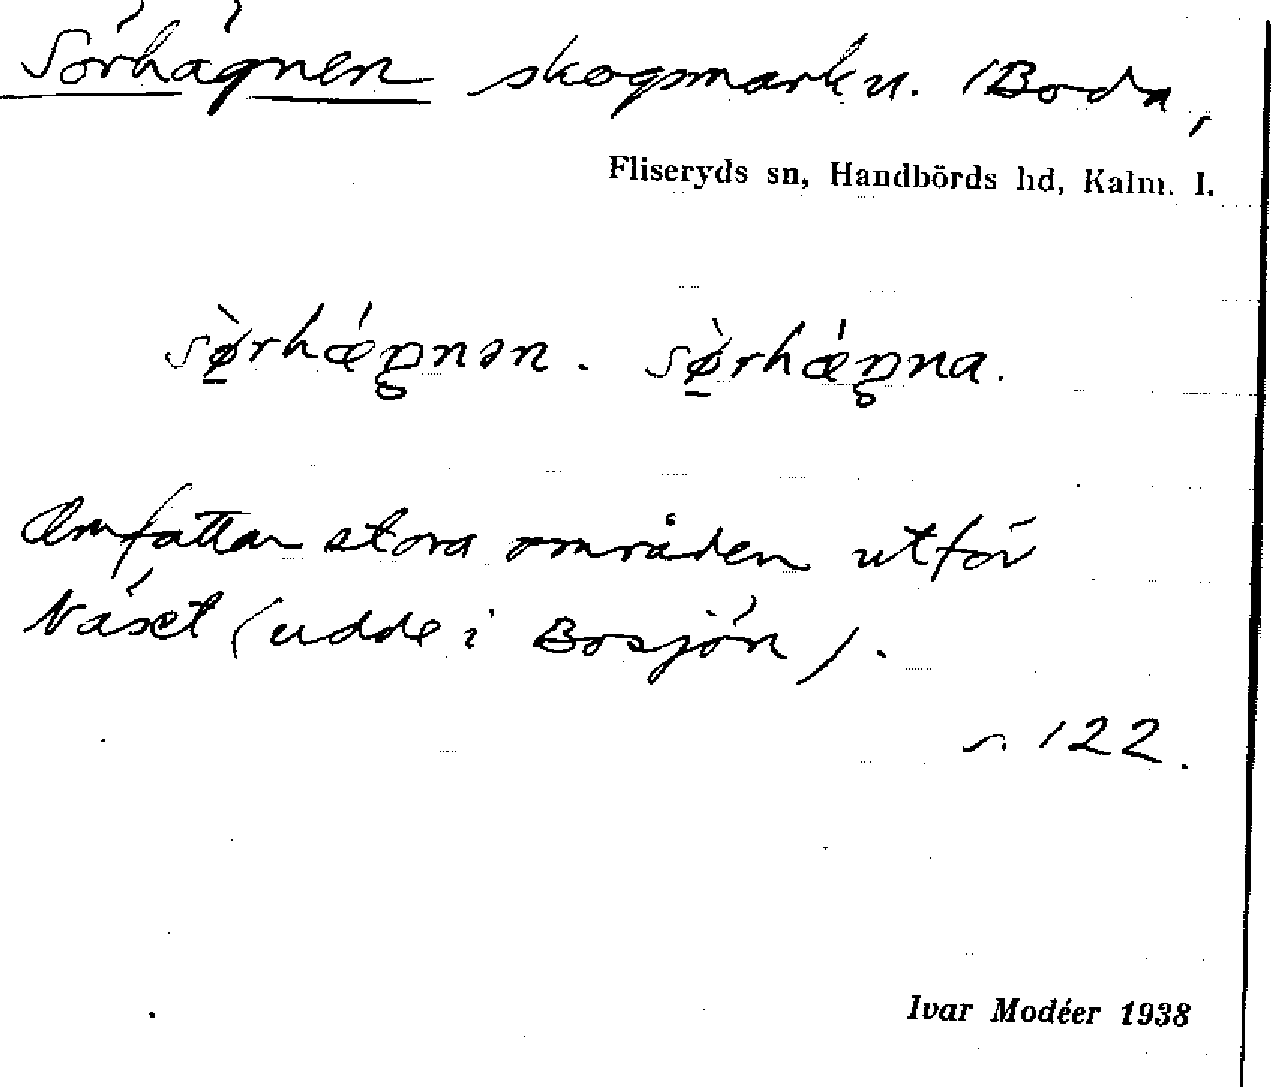 Sörhägnen skogsmark u. /Boda,
Fliseryds sn, Handbörds hd, Kalm. l.
sø̱̀rhǽŋnən. sø̱̀rhǽŋna.
Omfattar stora områden utför
Näset (udde i Bosjön).
s. 122.
Ivar Modéer 1938